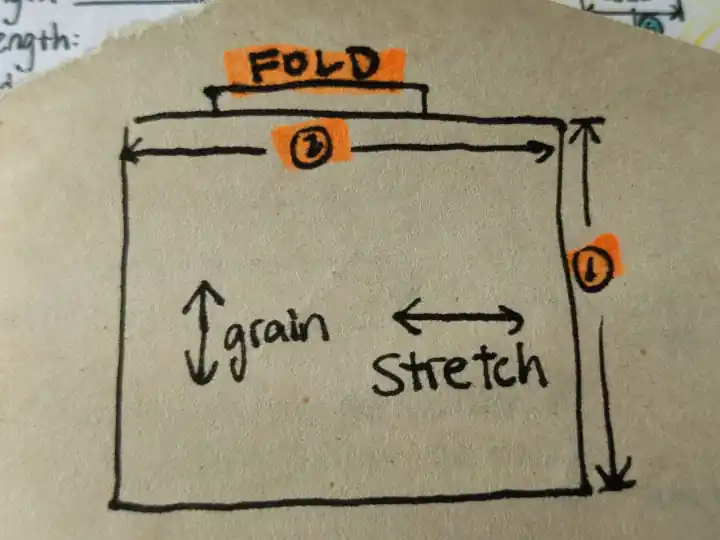 ength:
FOLD
②
①
grain
Stretch